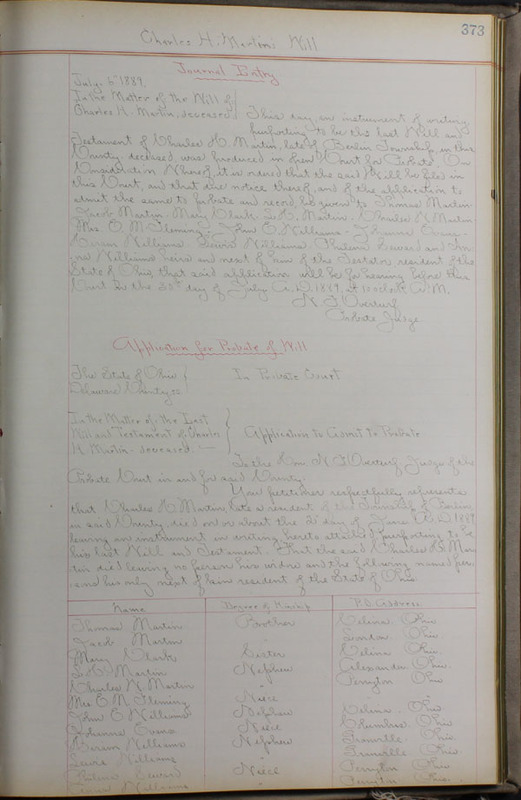 373
Charles H. Martin's Will
Journal Entry
July 6" 1889.
In the Matter of the Will of
Charles H. Martin, deceased
This day an instrument of writing
purporting to be the last Will and
Testament of Charles H. Martin, late of Berlin Township, in this
County, deceased, was produced in open Court for Probate. On
Consideration whereof, it is ordered that the said Will be filed in
this Court, and that due notice thereof, and of the application to
admit the same to Probate and record, be given to Thomas Martin
Jacob Martin, Mary Clark, Martin, Charles N. Martin
Mrs. E. M. Fleming, John E. Williams, Johanna Evans,
Hiram Williams, Lewis Williams, Seward and
Williams heirs and next of kin of the Testator resident of the
State of Ohio, that said application will be for hearing before this
Court on the 30" day of July A.D. 1889. at 10 o'clock A.M.
N. J. Overturf
Probate Judge
Application for Probate of Will
The State of Ohio
Delaware County ss
In Probate Court
In the Matter of the Last
Will and Testament of Charles
H. Martin, deceased.
Application to Admit to Probate
To the Hon. N. J. Overturf Judge of the
Probate Court in and for said County:
Your petitioner respectfully represents
that Charles H. Martin, late a resident of the Township of Berlin,
in said County, died on or about the 2" day of June A.D. 1889
leaving an instrument in writing, hereto attached purporting to be
his last Will and Testament. That the said Charles H. Mar-
tin died leaving no person his widow and the following named per-
sons his only next of kin resident of the State of Ohio.
Name Degree of Kinship P.O. Address
Thomas Martin Brother Celina Ohio
Jacob Martin London Ohio
Mary Clark Sister Celina Ohio.
Martin Nephew Alexandria Ohio.
Charles N. Martin Ohio
Mrs E. M. Fleming Niece
John E Williams Nephew Celina Ohio
Johanna Evans Niece Columbus Ohio
Hiram Williams Nephew Granville Ohio.
Lewis Williams Granville Ohio.
Seward Niece Ohio
Williams Ohio.